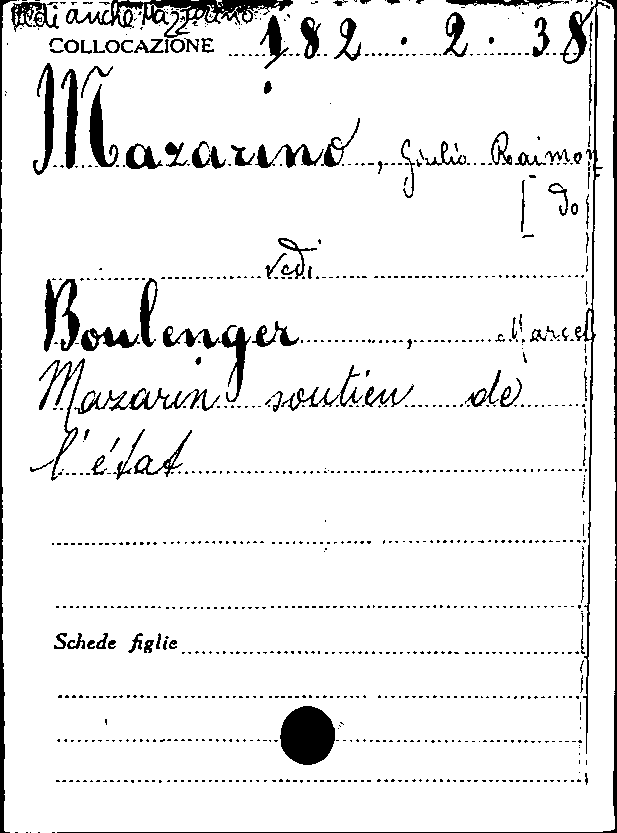 Vedi anche Mazzarino
COLLOCAZIONE 182.2.38
Mazarino, Giulio Raimon
[do
vedi
Boulenger, Marcel
Mazarin soutien de
l'état
Schede figlie